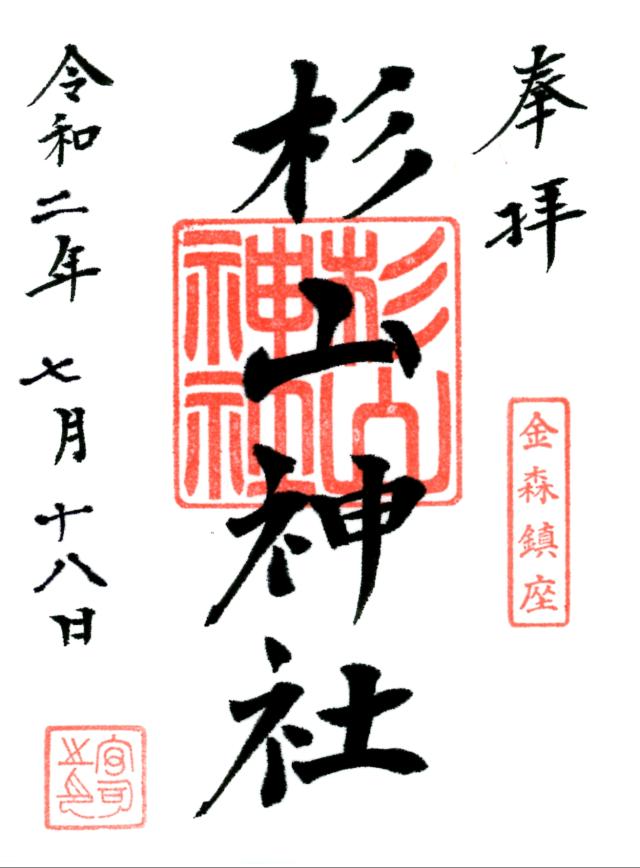 奉拝
金森鎮座
杉山神社
杉山神社
令和二年 七月十八日
宮司之印